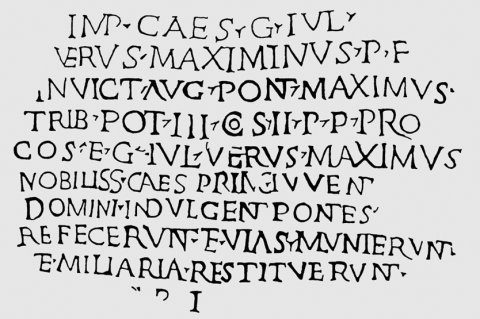 IMP·CAES·G·IVL·
VERVS·MAXIMINVS·P·F
INVICT·AVG·PONT·MAXIMVS·
TRIB·POT·III·COSII·P·P·PRO
COS·E·G·IVL·VERVS·MAXIMVS
NOBILISS·CAES PRINC IVVENT
DOMINI·INDVLGENT PONTES
REFECERVNT·E·VIAS·MVNIERVNT
E·MILIARIA·RESTITVERVNT·
I